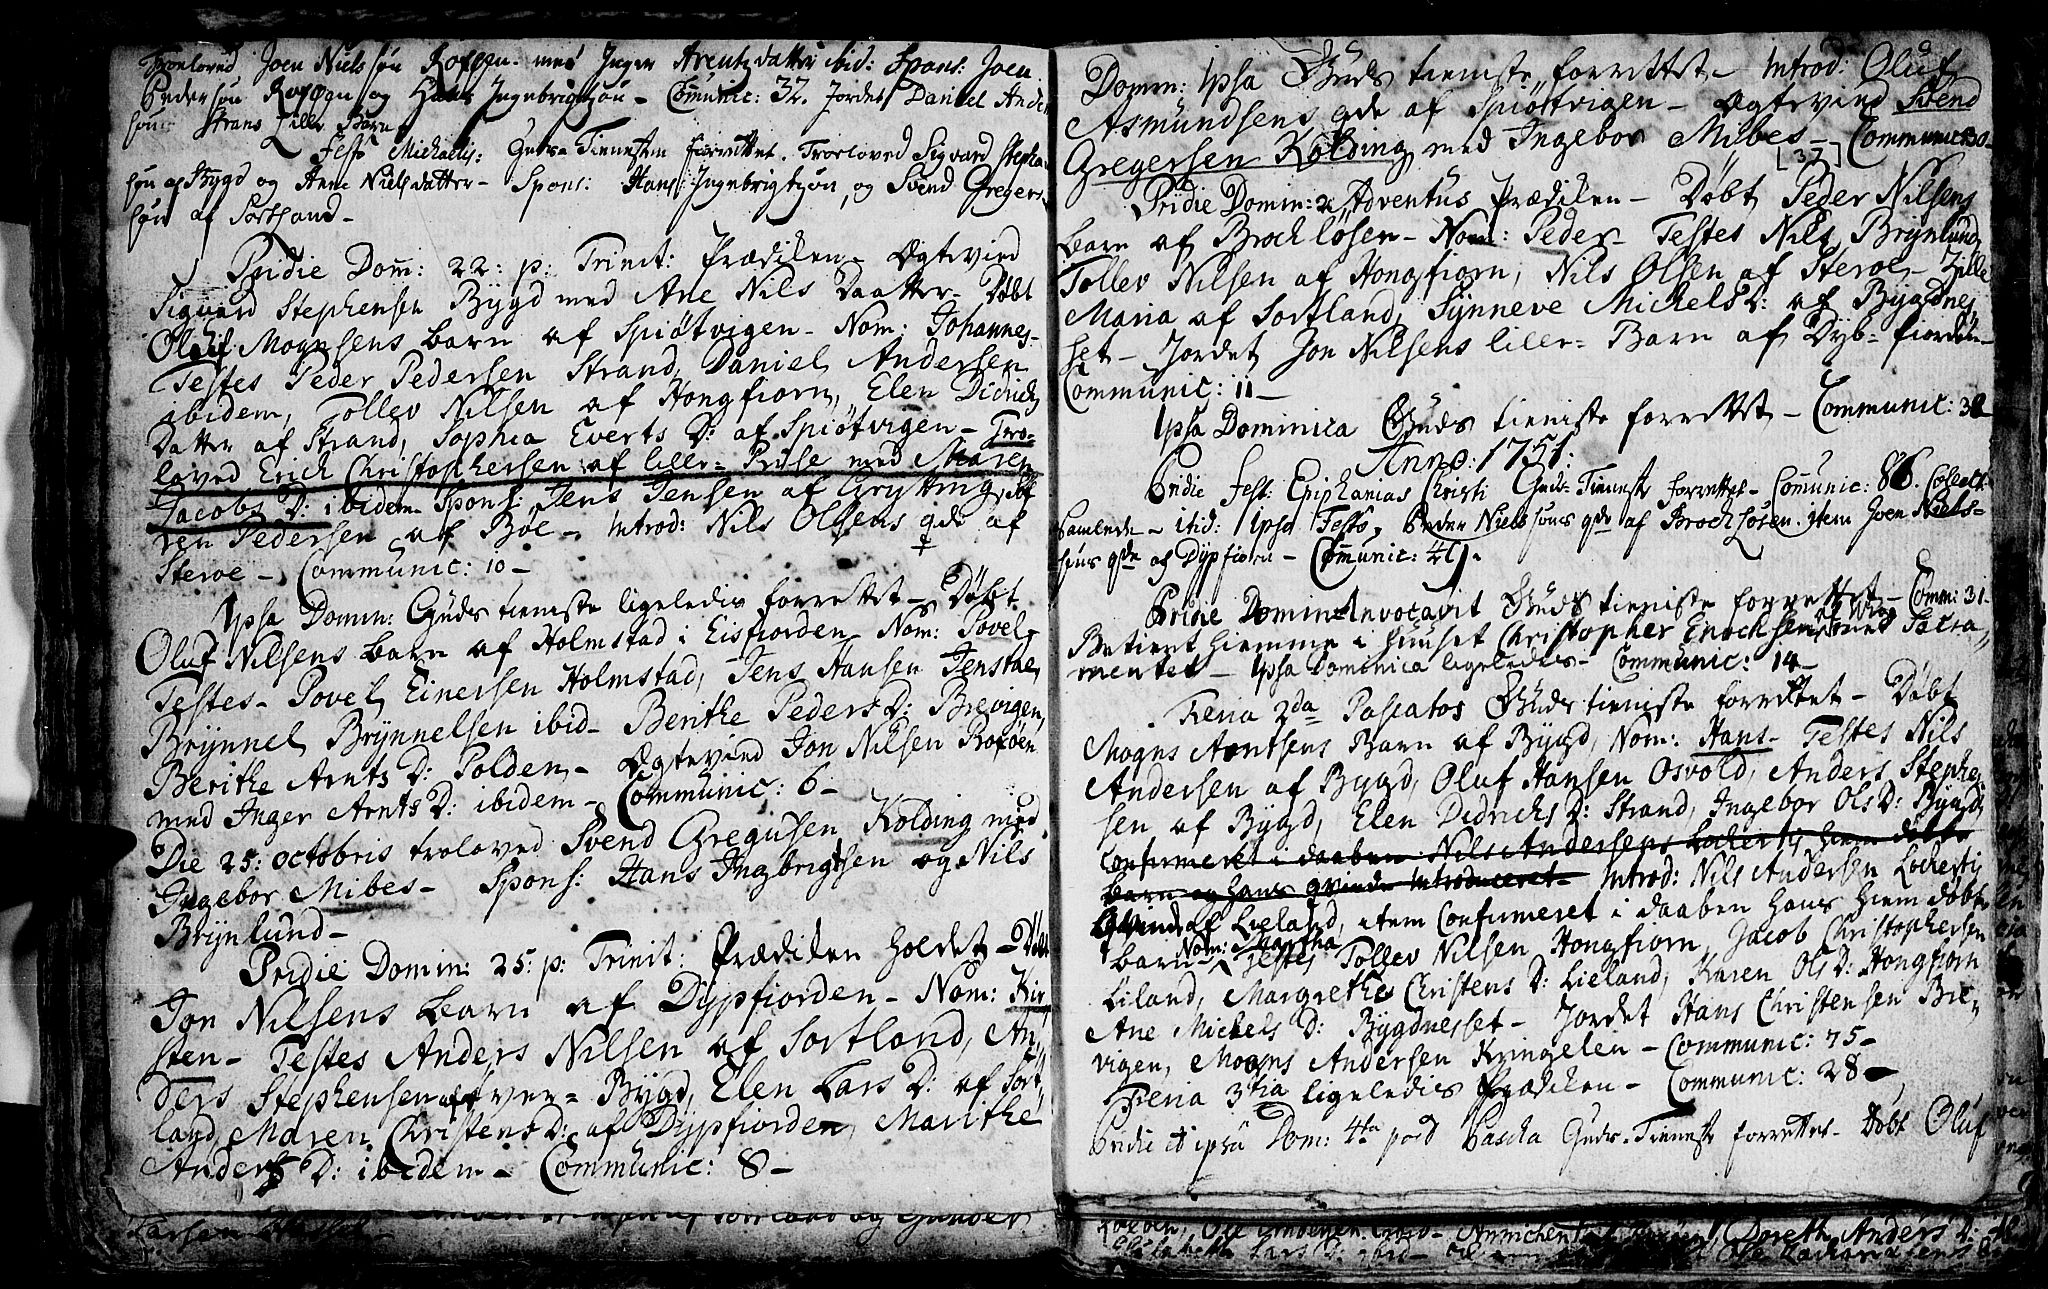 Troeloved Joen Nielssøn Rossøen med Inger Arentzdatter ibid: Spons: Joen
Pedersøn Rossøen og Hans Ingebrigtsøn – Comunic: 32. Jordet Daniel Ander
søns Strans Lille Barn
Festo Michaelis: Guds Tienesten forrettet. Troeloved Sigvard Stephen
søn af Bygd og Anne Nielsdatter – Spons: Hans Ingebrigtsøn, og Svend Gregers
søn af Sortland –
Pridie Dom: 22: p: Trinit: Prædiken – Ægtevied
Siguard Stephensen Bÿgd med Ane Nils Daatter – Døbt
Oluf Mognsens barn af Spiøtvigen – Nom: Johannes –
Testes Peder Pedersen Strand, Daniel Andersen
ibidem, Tollev Nilsen af Hongfiorn, Elen Didrichs
Datter af Strand, Sophia Everts D: af Spiøtvigen – Tro-
loved Erich Christophersen af lille- Prise med Maren
Jacobs D: ibidem Spons: Jens Jensen af Grÿtting
ren Pedersen af Bøe – Introd: Nils Olsens qde af
Steroe – Communic: 10 –
Ipsa Domin: Guds tieniste ligeledis forrettet – Døbt
Oluf Nilsens barn af Holmstad i Eisfiorden – Nom: Povel –
Testes – Povel Einersen Holmstad, Jens Hansen Jenstad,
Brÿnnel Brÿnnelsen ibid – Berithe Peders D: Brevigen,
Berithe Arnts D: Polden – Ægtevied Jon Nilsen Rosøen
med Inger Arnts D: ibidem – Communic: 6 –
Die 25: octobris troloved Svend Gregersen Kolding med
Ingebor Mibes – Spons: Hans Ingbrigtsen og Nils
Brÿnlund –
Pridie Domin: 25: p: Trinit: Prædiken holdet – Døbt
Jon Nilsens barn af Dÿpfiorden – Nom: Kir-
sten – Testes Anders Nilsen af Sortland, An-
ders Stephensen af over- Bÿgd, Elen Lars D: af Sort-
land, Maren Christens D: af Dÿpfiorden, Marithe
Anders D: ibidem – Communic: 8 –
Domin: Ipsa Guds tieniste forrettet – Introd: Oluf
Asmundsens qde af Spiøtvigen – Ægtevied Svend
Gregersen Kolding med Ingebor Mibes – Communic:
[37]
Pridie Domin: 2 Adventus Prædiken – Døbt Peder Nilsens
barn af Brochløsen – Nom: Peder – Testes Nils Brÿnlund,
Tollev Nilsen af Hongfiorn, Nils Olsen af Steroe – Zille
Maria af Sortland, Sÿnneve Michels D: af Bÿgdnes-
set – Jordet Jon Nilsens lille- Barn af Dÿb- fiorden –
Communic: 11 –
Ipsa Dominica Guds tieniste forrettet – Communic: 38
Anno: 1751:
Pridie Fest: Epiphanias Christi Guds Tieneste forrettet – Comunic: 86. Collect
samlede – itid: Ipso Festo, Peder Nielssøns qde af Brochløsen. item Joen Niels-
søns qde af Dÿpfiorn – Comunic: 49.
Pridie Domin: Invocavit Guds tieniste forrettet – Comm: 31 –
Betient hiemme i huuset Christopher Enochsen med Sacra-
mentet – Ipsa Dominica ligeledis – Communic: 14 –
Feria 2da Pascatos Guds tieniste forrettet – Døbt
Mogns Arntsens Barn af Bÿgd, Nom: Hans – Testes Nils
Andersen af Bÿgd, Oluf Hansen Osvold, Anders Stephen-
sen af Bÿgd, Elen Dedrichs D: Strand, Ingebor Ols D: Bÿgd,
Confirmeret i daaben Nils Andersens Lochertis hiem døbte
barn og hans qvinde Introduceret – Introd: Nils Andersen Lochertis
Qvinde af Lieland, item Confirmeret i daaben hans hiem døbte
barn – Nom: Martha Testes Tollev Nilsen Hongfiorn, Jacob Christophersen
Liland, Margrethe Christens D: Lieland, Karen Ols D: Hongfiorn
Ane Michels D: Bÿgdnesset – Jordet Hans Christensen Bre-
vigen, Mogns Andersen Kringelen – Communic: 75 –
Feria 3tia ligeledis Prædiken – Communic: 28 –
Pridie et ipsâ Dom: 4ta post Pascha Guds- Tieneste forrettet – Døbt Oluf